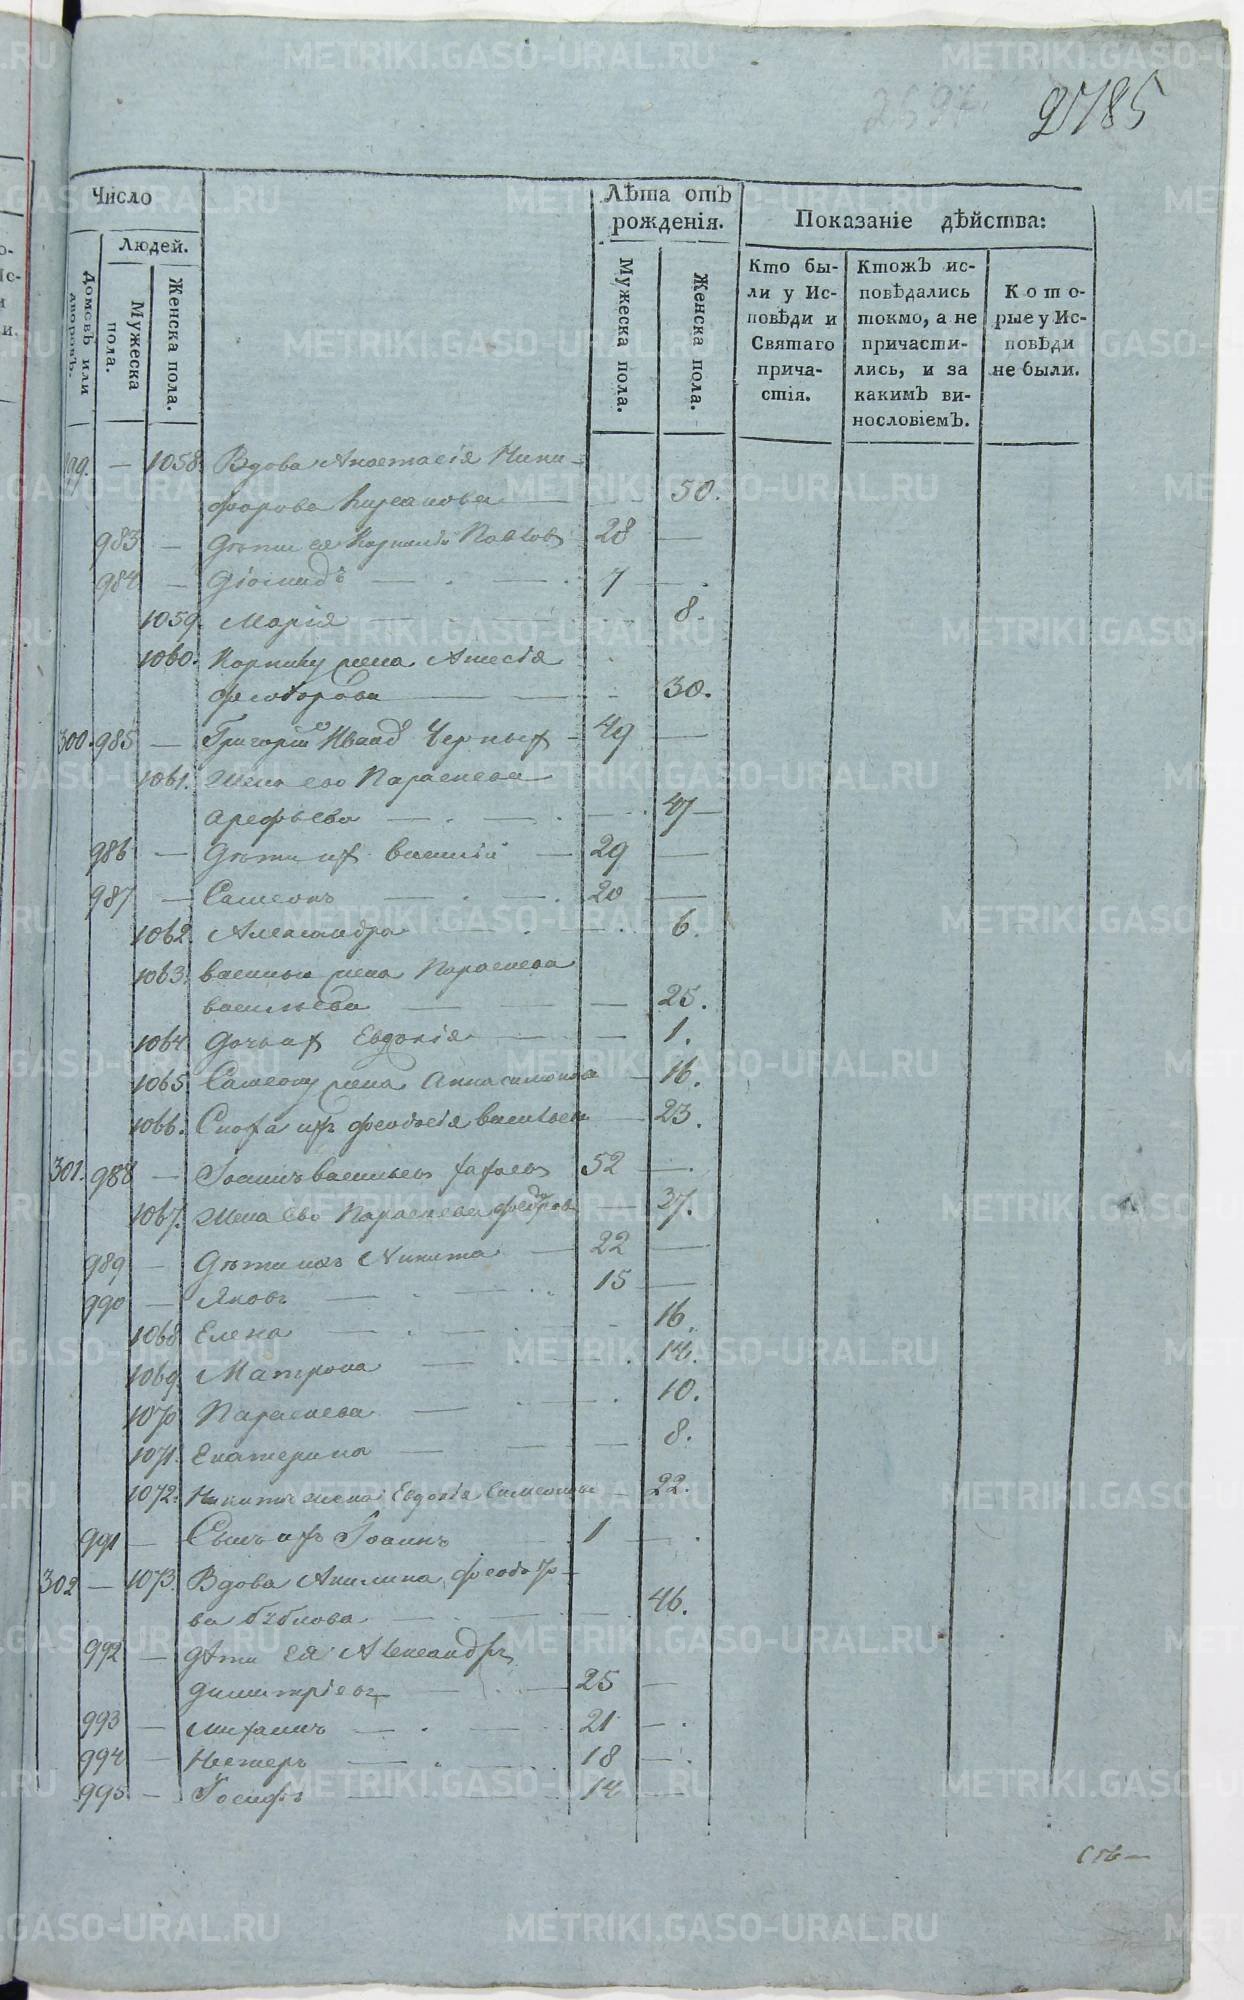 2785
Число
Людей.
Домовъ или дворовъ.
Мужеска пола.
Женска пола.
Лѣта отъ рожденія.
Мужеска пола.
Женска пола.
Показаніе дѣйства:
Кто бы-
ли у Ис-
повѣди и
Святаго
прича-
стія.
Ктожъ ис-
повѣдались
токмо, а не
причасти-
лись, и за
какимъ ви-
нословіемъ.
Кото-
рые у Ис-
повѣди
не были.
299. — 1058. Вдова Анастасія Ники-
форова 50.
983 — Дѣти ея Павловъ 28 —
984 — Діомидъ 7 —
1059. Марія 8.
1060. жена
Феодорова 30.
300. 985 — Григорій Ивановъ Черныхъ 49 —
1061. Жена его Параскева
Арефьева 47 —
986 — Дѣти ихъ Василій 29 —
987 — Самеонъ 20 —
1062. Александра 6.
1063. Василья жена Параскева
Васильева 25.
1064. Дочь ихъ Евдокія 1.
1065. Самеону жена Анна 16.
1066. Сноха ихъ Феодосія Васильева 23.
301. 988 — Іоаннъ Васильевъ 52 —
1067. Жена его Параскева Федорова 37.
989 — Дѣти ихъ Никита 22 —
990 — Яковъ 15 —
1068. Елена 16.
1069. Матрона 14.
1070. Параскева 10.
1071. Екатерина 8.
1072. Никиты жена Евдокія Самеонова 22.
991 — Сынъ ихъ Іоаннъ 1 —
302 — 1073. Вдова Акилина Феодоро-
ва 46.
992 — Дѣти ея Александръ
Димитріевъ 25 —
993 — Михаилъ 21 —
994 — Нестеръ 18 —
995 — Іосифъ 14 —
METRIKI.GASO-URAL.RU